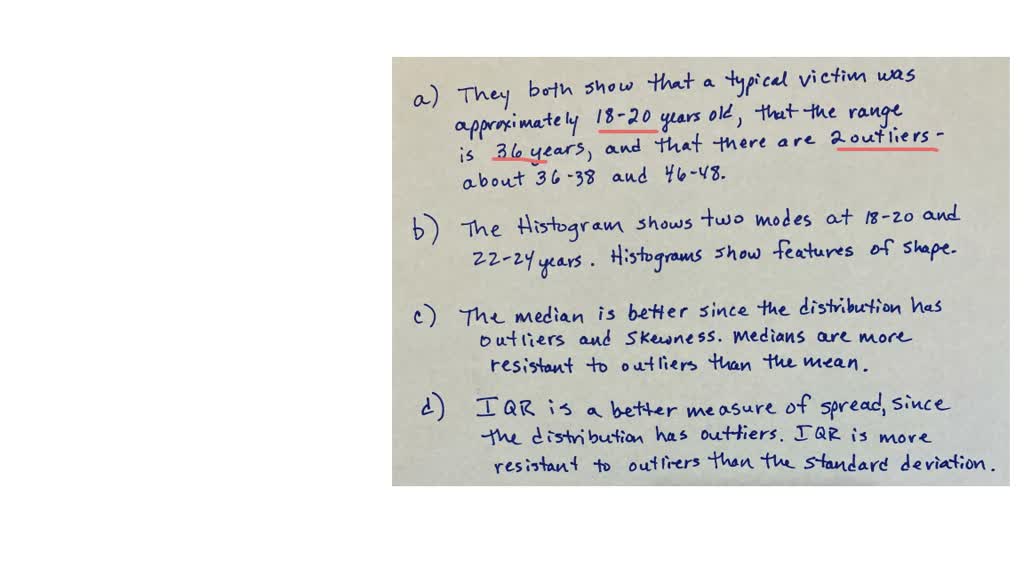 a) They both show that a typical victim was
approximately 18-20 years old, that the range
is 36 years, and that there are 2 outliers -
about 36-38 and 46-48.
b) The Histogram shows two modes at 18-20 and
22-24 years. Histograms show features of shape.
c) The median is better since the distribution has
outliers and skewness. Medians are more
resistant to outliers than the mean.
d) IQR is a better measure of spread, since
the distribution has outliers. IQR is more
resistant to outliers than the standard deviation.